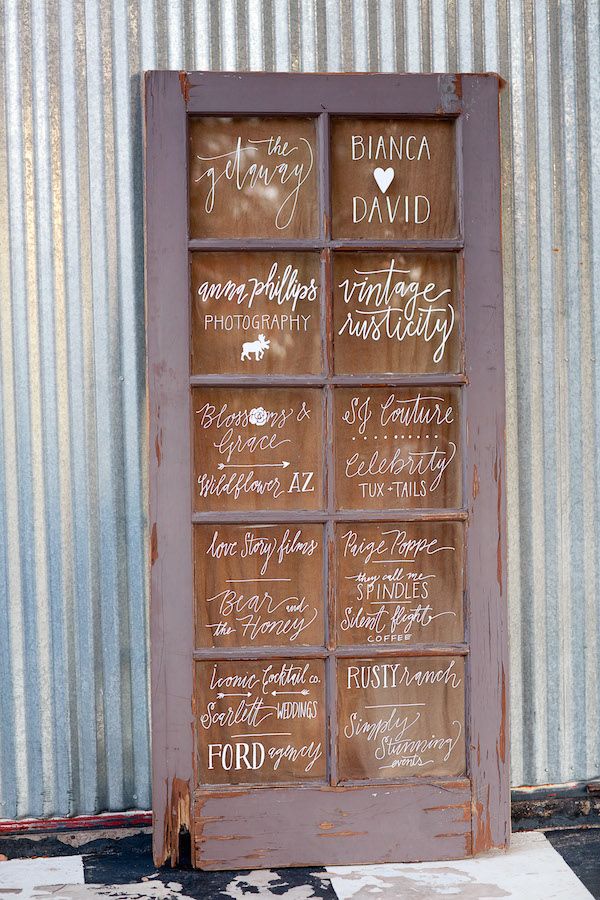 the
getaway
BIANCA
DAVID
anna phillips
PHOTOGRAPHY
vintage
rusticity
Blossoms &
Grace
Wildflower AZ
SJ Couture
Celebrity
TUX + TAILS
love Story films
Bear and
the Honey
Paige Poppe
they call me
SPINDLES
Silent flight
COFFEE
Iconic Cocktail co.
Scarlett WEDDINGS
FORD agency
RUSTY ranch
Simply
Stunning
events